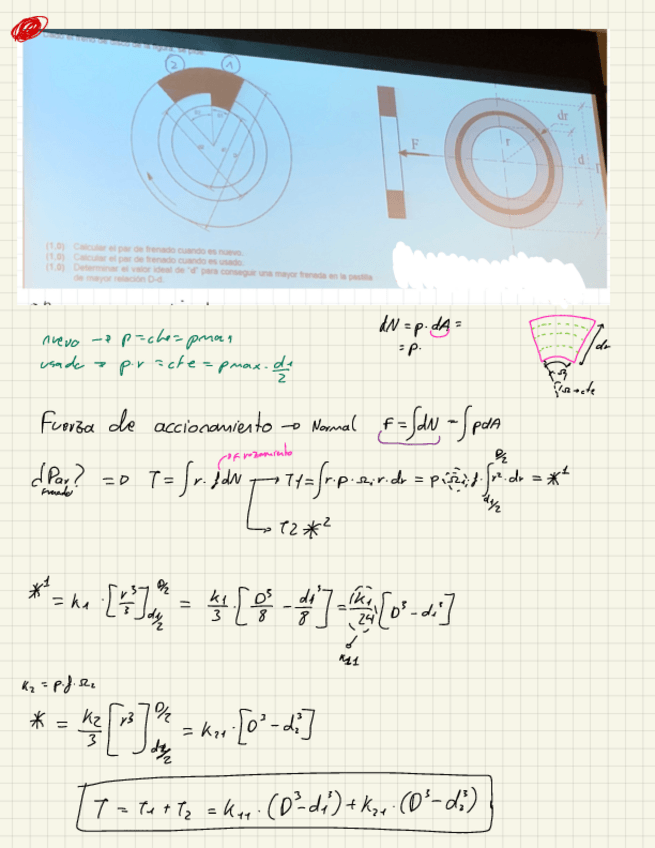 2 1
F r dr d
(1,0) Calcular el par de frenado cuando es nuevo.
(1,0) Calcular el par de frenado cuando es usado.
(1,0) Determinar el valor ideal de "d" para conseguir una mayor frenada en la pastilla
de mayor relación D-d.
nuevo → p = cte = pmax
usado → p·r = cte = pmax·d1/2
dN = p·dA =
= p·
dr
r·Ω
Ω→cte
Fuerza de accionamiento → Normal F = ∫dN = ∫pdA
f rozamiento
¿Par? frenado => T = ∫r·fdN → T1 = ∫r·p·Ω1·r·dr = p·Ω1·f·∫_{d1/2}^{D/2} r²·dr = *1
→ T2 *2
*1 = k1·[r³/3]_{d1/2}^{D/2} = k1/3·[D³/8 - d1³/8] = k1/24[D³-d1³]
k11
k2 = p·f·Ω2
* = k2/3[r³]_{d2/2}^{D/2} = k21·[D³-d2³]
T = T1 + T2 = k11·(D³-d1³)+k21·(D³-d2³)